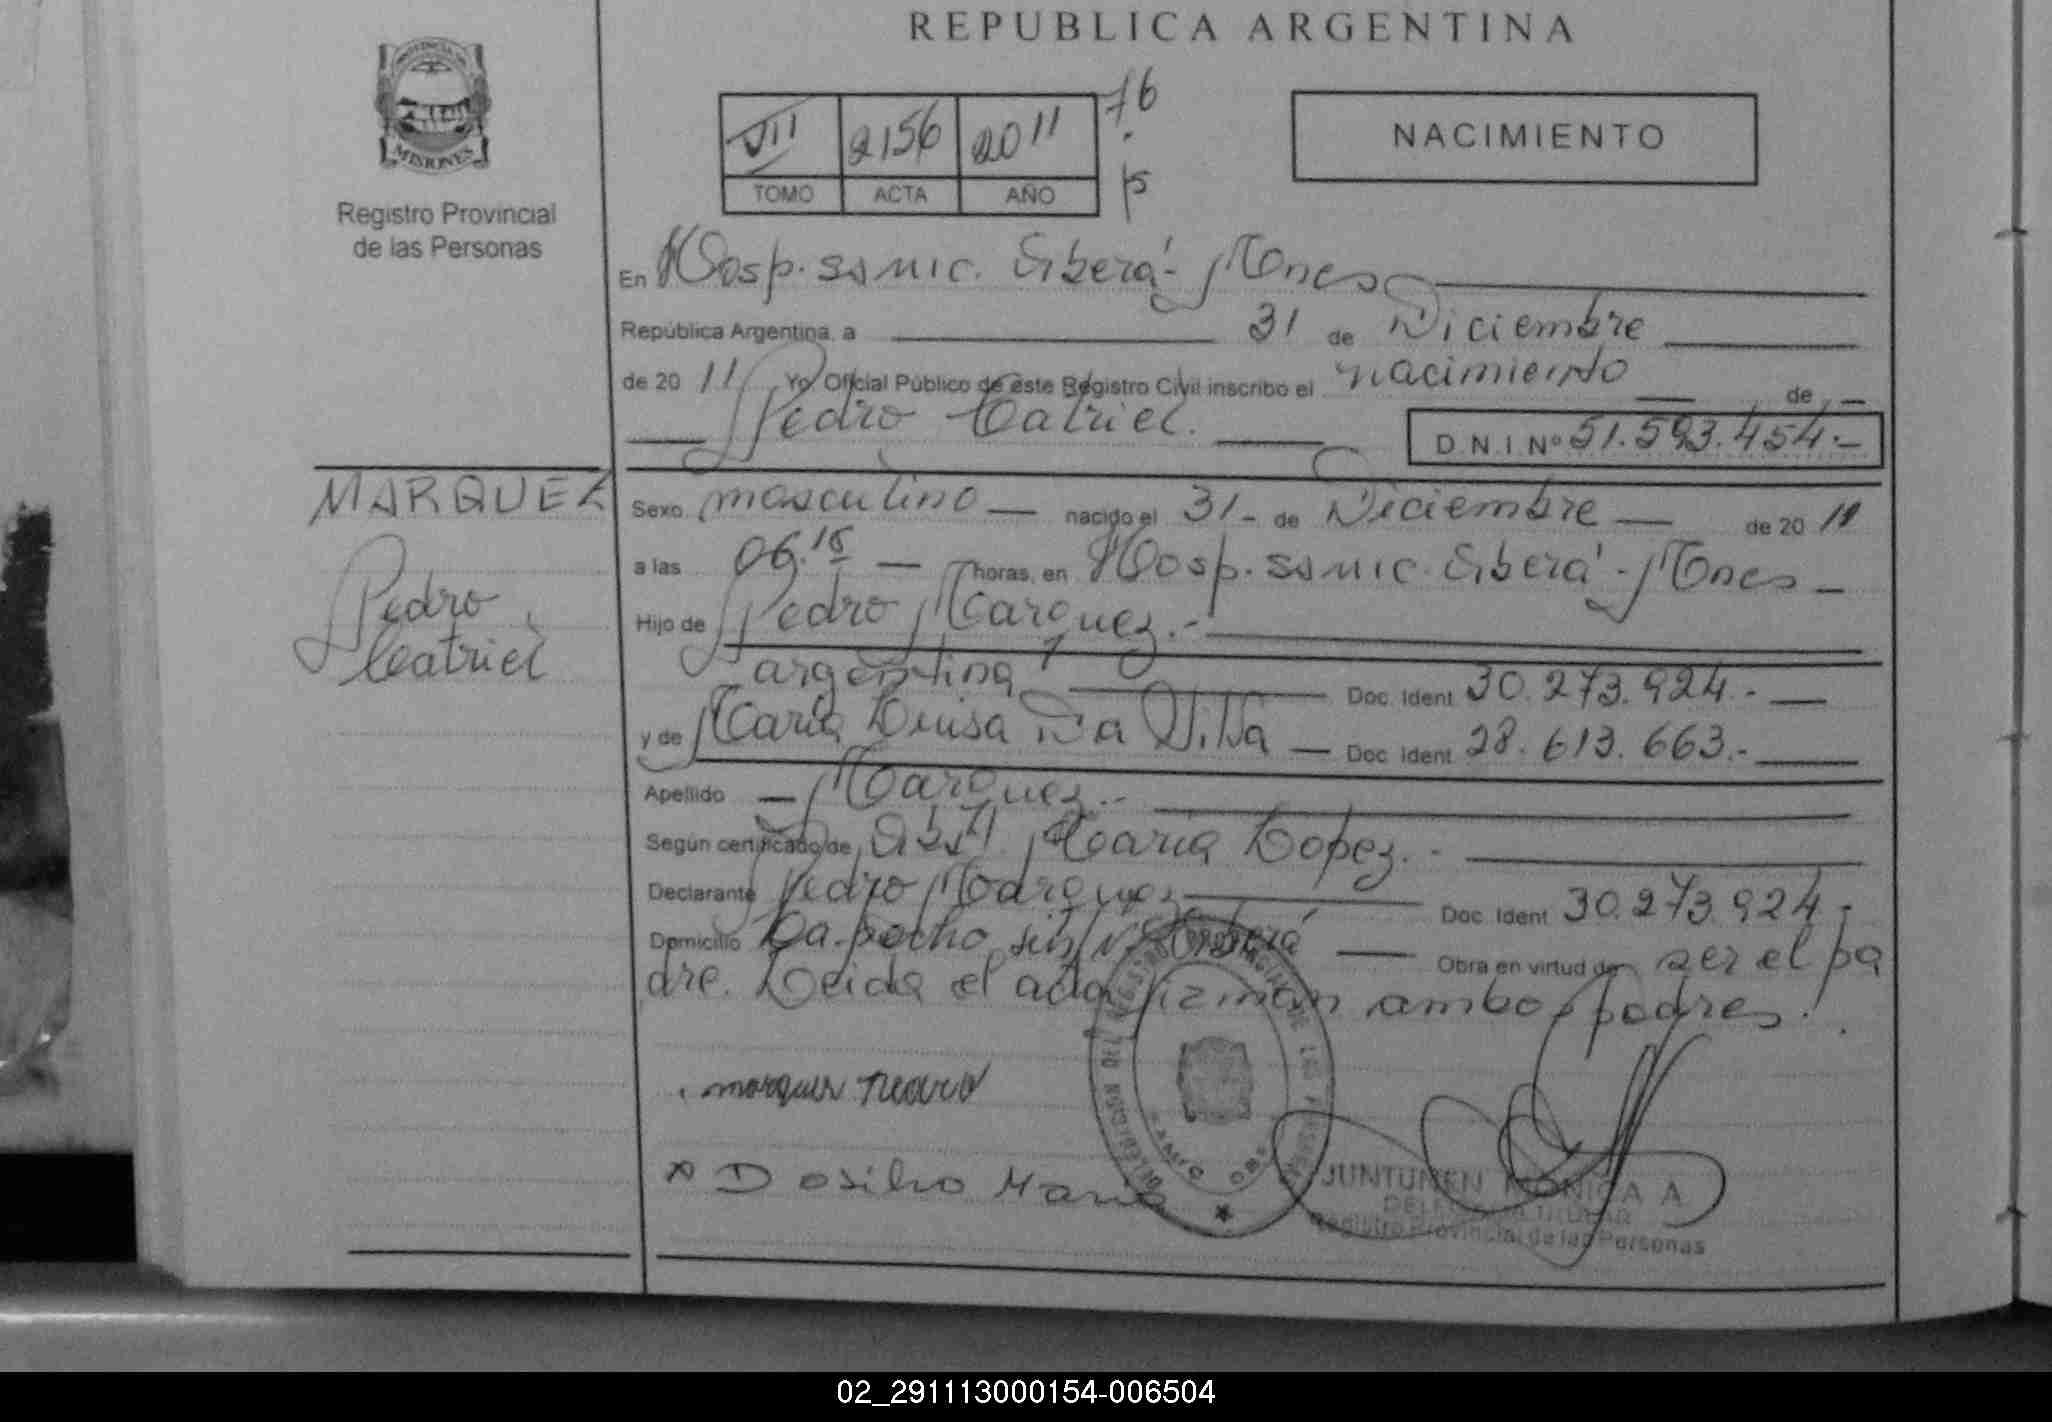 REPUBLICA ARGENTINA
PROVINCIA DE
MISIONES
Registro Provincial
de las Personas
VII 2156 2011
TOMO ACTA AÑO
76
NACIMIENTO
En Hosp. SSMIC. Oberá- Mnes
República Argentina, a 31 de Diciembre
de 2011 Yo, Oficial Público de este Registro Civil inscribo el nacimiento de
Pedro Catriel. D.N.I.Nº 51.593.454.-
MARQUEZ
Pedro
Catriel
Sexo masculino nacido el 31- de Diciembre de 2011
a las 06.15 horas, en Hosp. SSMIC. Oberá- Mnes
Hijo de Pedro Marquez.-
argentina Doc. Ident 30.273.924.-
y de Maria Luisa Da Silva Doc. Ident 28.613.663.-
Apellido Marquez.-
Según certificado de Obst. Maria Lopez.-
Declarante Pedro Marquez Doc. Ident 30.273.924.-
Domicilio Ca. pocho sin Nº Oberá Obra en virtud de ser el pa
dre. Leida el acta firman ambos padres.
marquez Pedro
Da silva Maria
JUNTUNEN MONICA A
DELEGADA TITULAR
Registro Provincial de las Personas
02_291113000154-006504